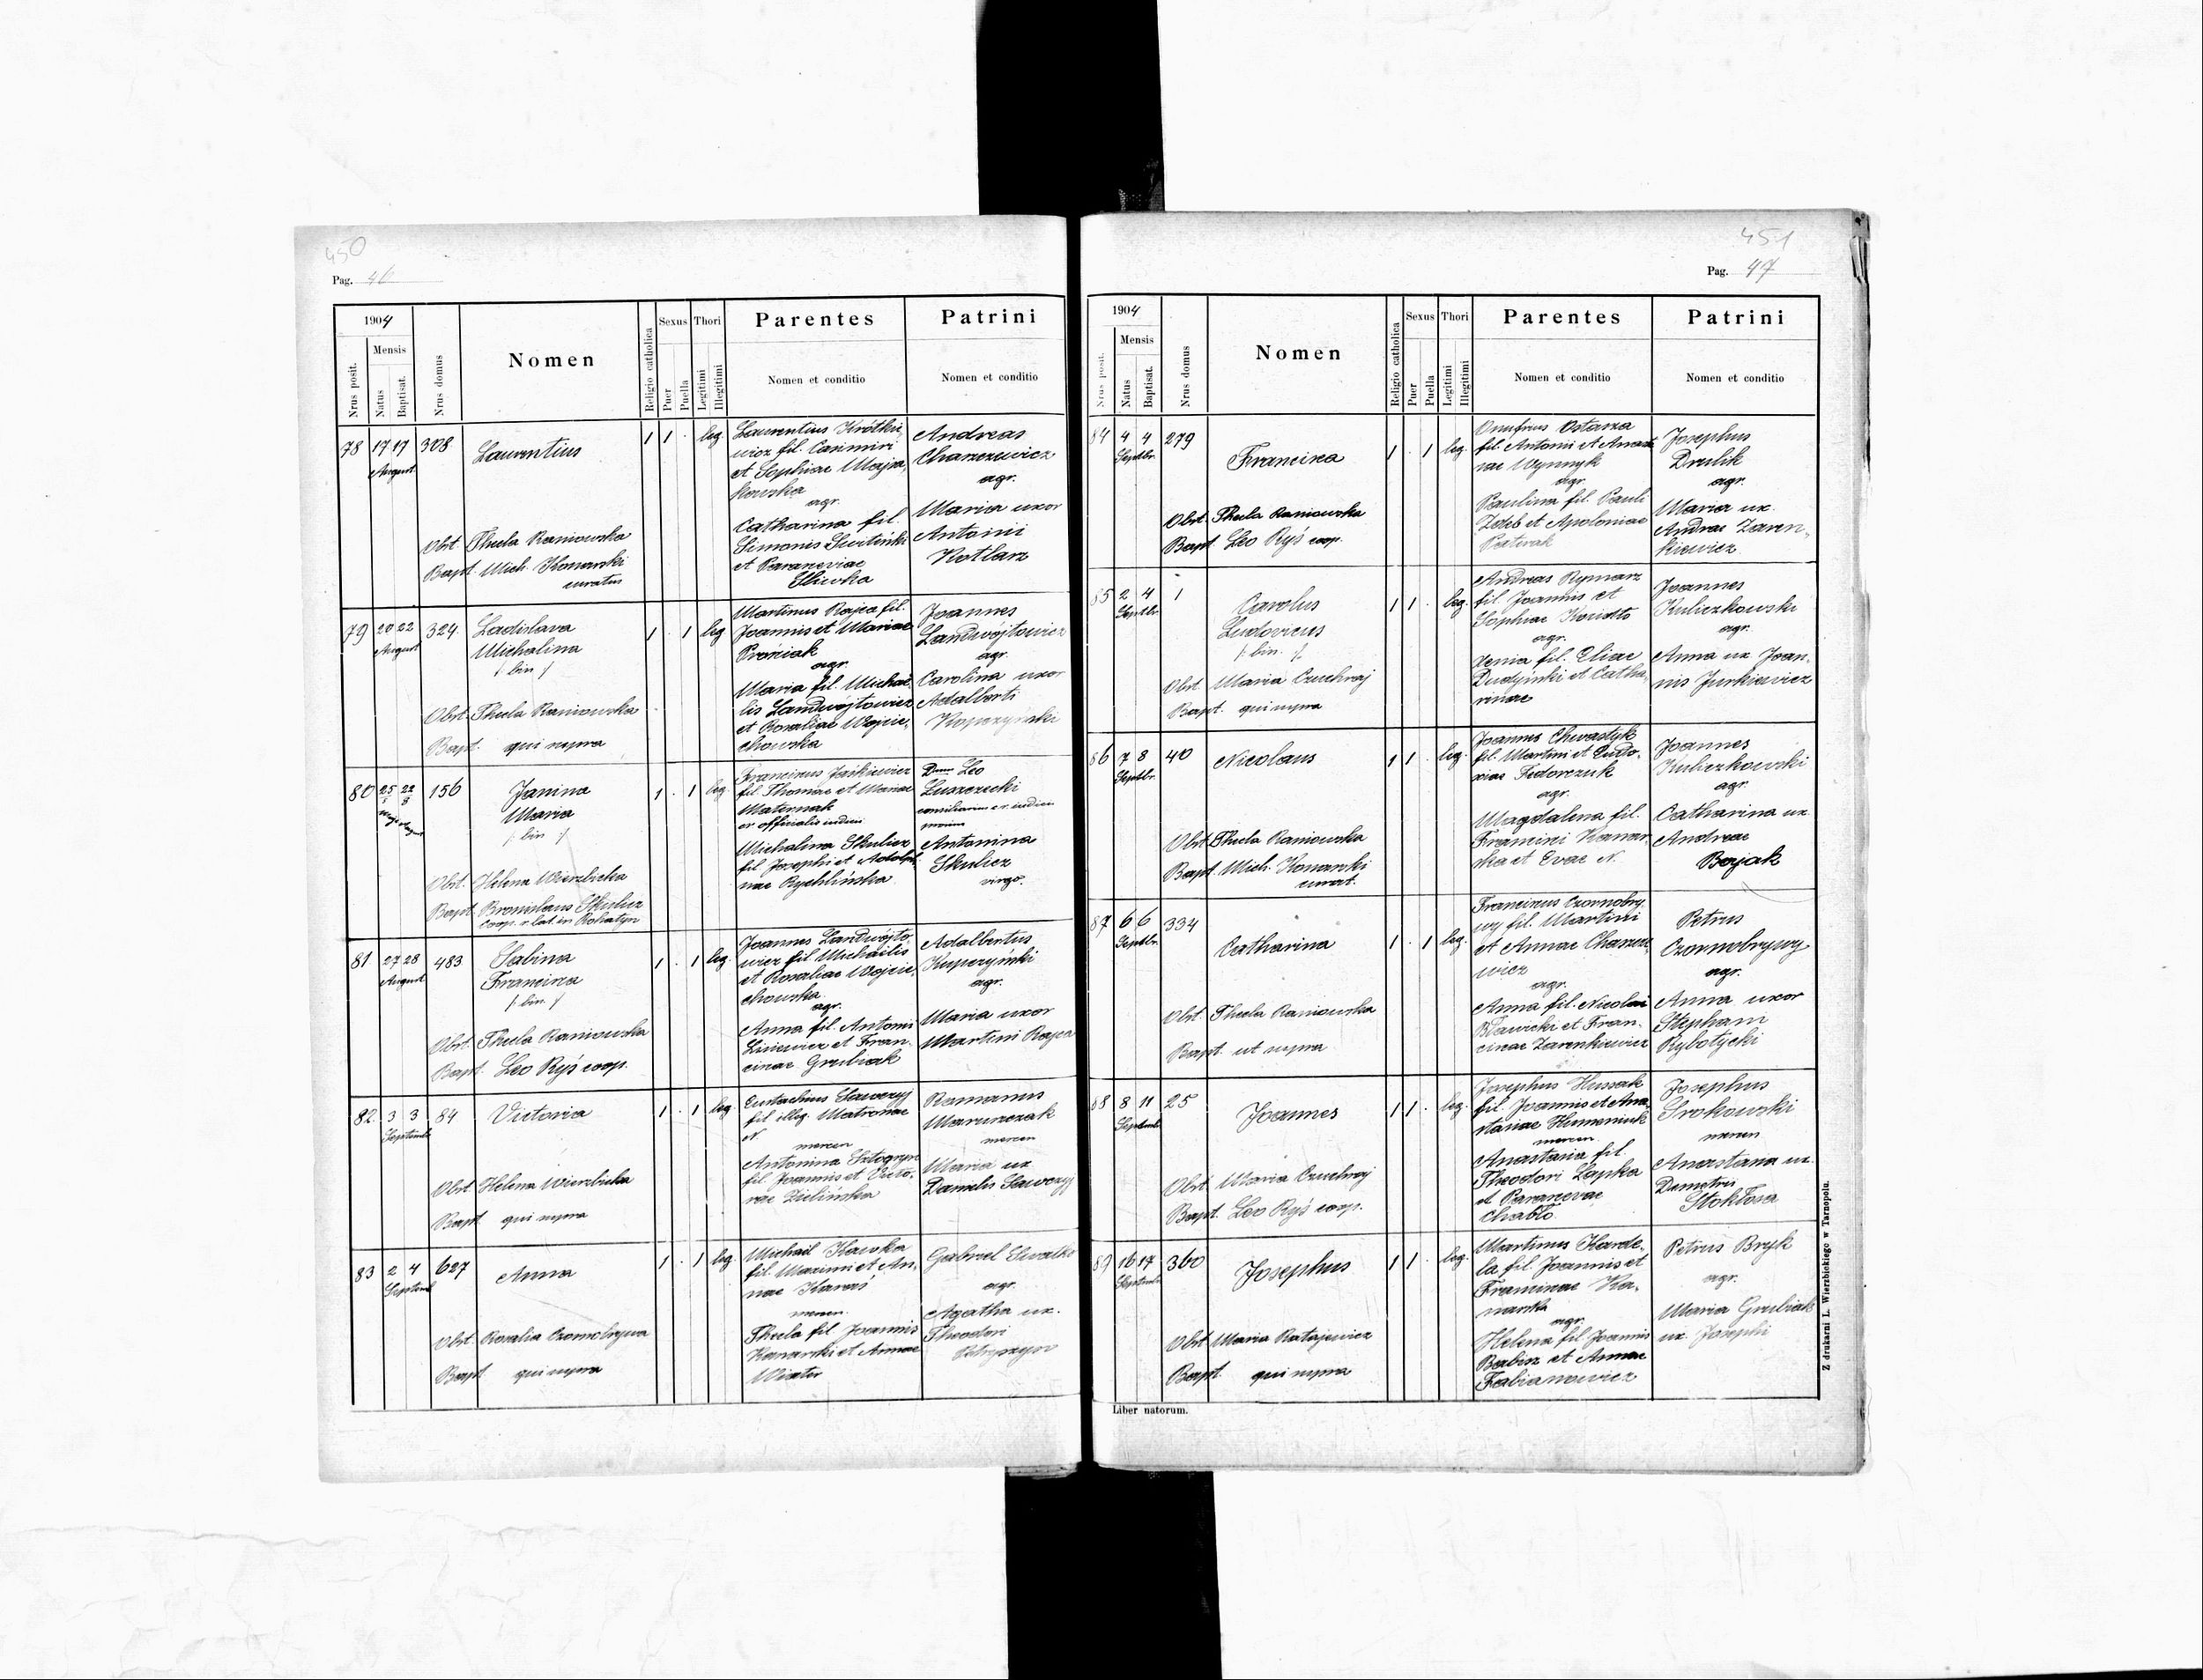 450
Pag. 46
1904
Nrus posit.
Mensis
Natus
Baptisat.
Nrus domus
Nomen
Religio catholica
Sexus
Puer
Puella
Thori
Legitimi
Illegitimi
Parentes
Nomen et conditio
Patrini
Nomen et conditio
78 17 17 308 Laurentius 1 1 . leg.
August
Obst. Thecla Raniowska
Bapt. Mich. Konarski
curatus
Laurentius Krótkie,
wicz fil. Casimiri
et Sophiae Majza,
kowska
agr.
Catharina fil.
Simonis Switiński
et Parasceviae
Sliwka
Andreas
Charzewicz
agr.
Maria uxor
Antonii
Kotlarz
79 20 22 324. Ladislava 1 . 1 leg
August
Michalina
/: bin :/
Obst. Thecla Raniowska
Bapt. qui supra
Martinus Rajca fil.
Joannis et Mariae
Proniak
agr.
Maria fil. Michaë
lis Landwójtowicz
et Rosaliae Wojcie,
chowska
Joannes
Landwójtowicz
agr.
Carolina uxor
Adalberti
Kopczyński
80 25 22 156 Janina 1 . 1 leg.
5 8
Maji August
Maria
/: bin :/
Obst. Helena Wierzbicka
Bapt. Bronislaus Skulicz
coop. r. lat in Rohatyn
Franciscus Jaśkiewicz
fil. Thomae et Mariae
Maternak
cr officialis
Michalina Skulicz
fil. Josephi et Adolph,
inae Rychlińska
Dnus Leo
Luszczecki
Antonina
Skulicz
virgo.
81 27 28 483 Sabina 1 . 1 leg.
August
Francisca
/: bin. :/
Obst. Thecla Raniowska
Bapt. Leo Ryś coop.
Joannes Landwójto
wicz fil Michaëlis
et Rosaliae Wojcie,
chowska
agr.
Anna fil. Antonii
Lisiewicz et Fran,
ciscae Grubiak
Adalbertus
Kupczyński
agr.
Maria uxor
Martini Rajca
82. 3 3 84 Victoria 1 . 1 leg
Septemb.
Obst. Helena Wierzbicka
Bapt. qui supra
Eustachius Sawczyj
fil illeg. Matronae
N.
mercen
Antonina Sztogryn
fil Joannis et Victo,
riae Zielińska
Romanus
Maruszczak
mercen
Maria ux
Danielis Sawczyj
83 2 4 627 Anna 1 . 1 leg
Septemb.
Obst. Rosalia Czornobrywa
Bapt. qui supra
Michaël Kawka
fil. Maximi et An,
nae Karaś
mercen.
Thecla fil Joannis
Kanarski et Annae
Wiater
Gabriel Chwalko
agr.
Agatha ux.
Theodori
451
Pag. 47
1904
Nrus posit.
Mensis
Natus
Baptisat.
Nrus domus
Nomen
Religio catholica
Sexus
Puer
Puella
Thori
Legitimi
Illegitimi
Parentes
Nomen et conditio
Patrini
Nomen et conditio
84 4 4 279 Francisca 1 . 1 leg.
Septbr.
Obst. Thecla Raniowska
Bapt. Leo Ryś coop.
Onufrius Ostasza
fil. Antonii et Anasta
siae Wynnyk
agr.
Paulina fil. Pauli
Zateb et Apoloniae
Paterak
Josephus
Drulik
agr.
Maria ux.
Andreae Zaren,
kiewicz
85 2 4 1 Carolus 1 1 . leg.
Septbr.
Ludovicus
/: bin. :/
Obst. Maria Czuchraj
Bapt. qui supra
Andreas Rymarz
fil Joannis et
Sophiae
agr.
Xenia fil. Eliae
Dudyński et Catha,
rinae
Joannes
Kuliczkowski
agr.
Anna ux Joan,
nis Jurkiewicz
86 7 8 40 Nicolaus 1 1 . leg.
Septbr.
Obst. Thecla Raniowska
Bapt. Mich. Konarski
curat.
Joannes Chwastyk
fil. Martini et Eudo,
xiae Fedorczuk
agr.
Magdalena fil.
Francisci Kanar,
ska et Evae N.
Joannes
Kuliczkowski
agr.
Catharina ux
Andreae
Berjak
87 6 6 334 Catharina 1 . 1 leg.
Septbr.
Obst. Thecla Raniowska
Bapt. ut supra
Franciscus Czornobry,
wy fil. Martini
et Annae Charze
wicz
agr.
Anna fil. Nicolai
Bławicki et Fran,
ciscae Zarenkiewicz
Petrus
Czornobrywy
agr.
Anna uxor
Stephani
Rybotycki
88 8 11 25 Joannes 1 1 . leg.
Septemb.
Obst. Maria Czuchraj
Bapt. Leo Ryś coop.
Josephus Hussak
fil. Joannis et Ana,
stasiae Humeniuk
mercen.
Anastasia fil.
Theodori Łapka
et Parasceviae
Chabło
Josephus
Srokowski
mercen
Anastasia ux.
Demetrii
Stokłosa
89 16 17 360 Josephus 1 1 . leg.
Septemb.
Obst. Maria Ratajewicz
Bapt. qui supra
Martinus Harde,
la fil. Joannis et
Franciscae Ka,
narska
agr.
Helena fil. Joannis
Babisz et Annae
Fabianowicz
Petrus Bryk
agr.
Maria Grubiak
ux. Josephi
Liber natorum.
Z drukarni L. Wierzbickiego w Tarnopolu.